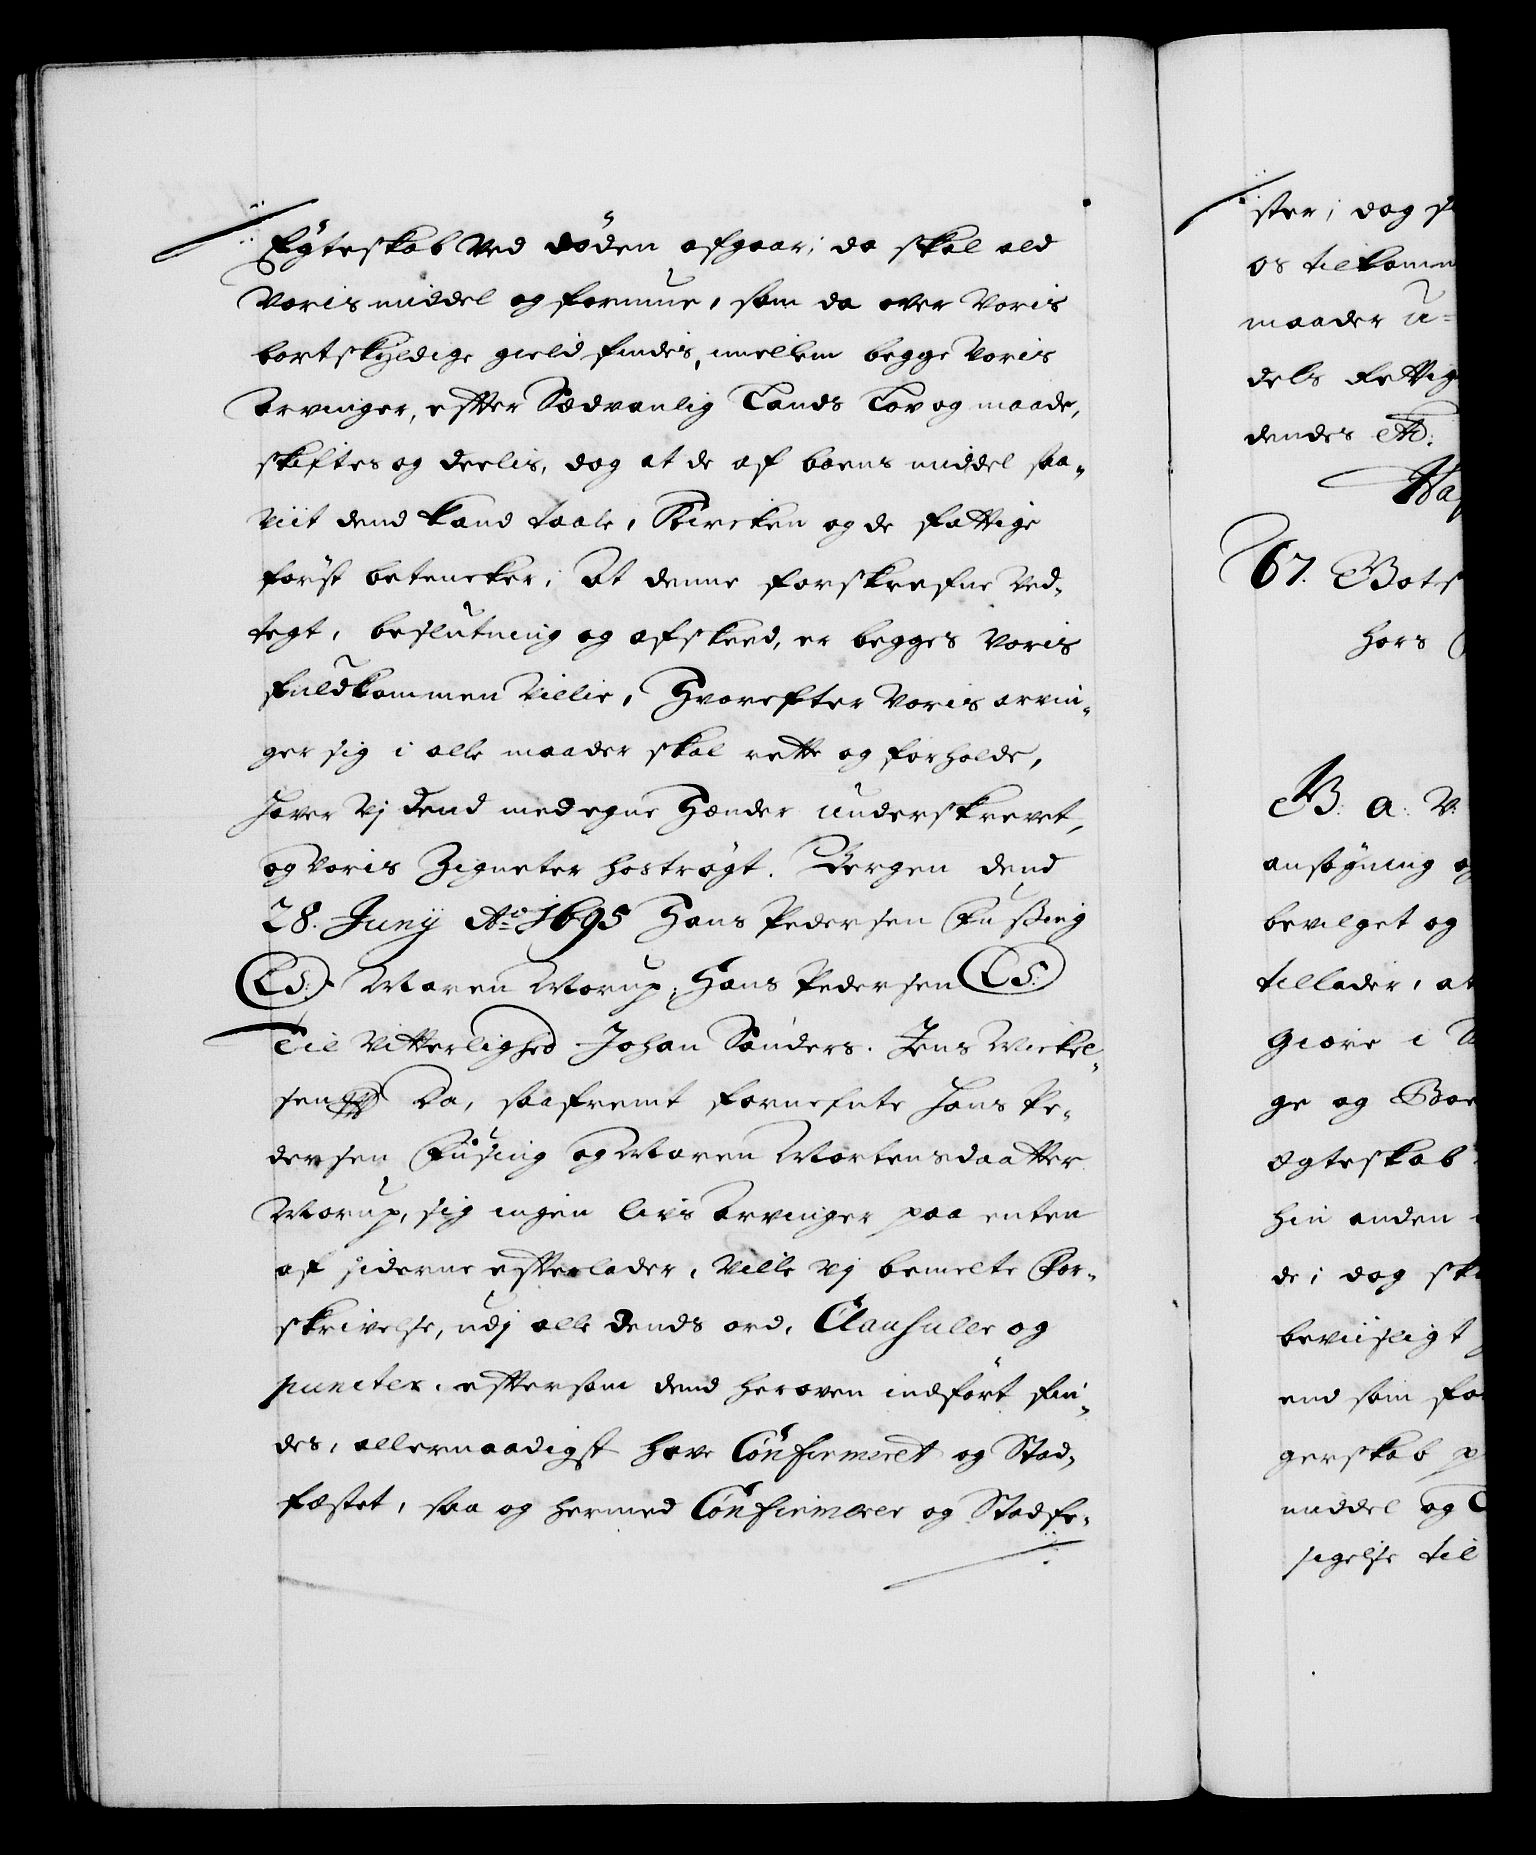 Egteskab ved döden afgaar; da skal ald
Voris middel og formue, som da over Voris
bortskyldige gield findes, imellem begge Voris
Arvinger, efter Sædvanlig Lands Lov og maade,
skiftes og deelis, dog at de af boens middel saa-
viit dend kand taale, Kircken og de fattige
först betencker; At denne forskrefne Ved-
tegt, beslutning og afskeed, er begges Voris
fuldkommen Villie, Hvorefter Voris arvin-
ger sig i alle maader skal rette og forholde,
haver Vj dend med egne Hænder underskrevet,
og Voris Zigneter hoströgt. Bergen dend
28. Junij Ao 1695 Hans Pedersen Fussing
(LS.) Maren Morup, Hans Pedersen (LS.)
Til Vitterlighed Johan Sanders. Jens Mickel-
sen Da, saafremt fornefnte Hans Pe-
dersen Fusing og Maren Mortensdaatter
Morup, sig ingen livs Arvinger paa enten
af siderne efterlader, Ville Vj bemelte For-
skrivelse, udj alle dends ord, Clausuller og
puncter, eftersom dend heroven indfört fin-
des, allernaadigst have Confirmeret og Stad-
fæstet, saa og hermed Confirmerer og Stadfe-
ster; dog
os tilkomm
maader u-
dels Rettig
dendes
67.
hors
B. a. V.
ansögning og
bevilget og
tillader, at
giöre i
ge og
Ægteskab
hin anden
de; dog
beviisligt
end som
gerskab
middel og
sigelse til